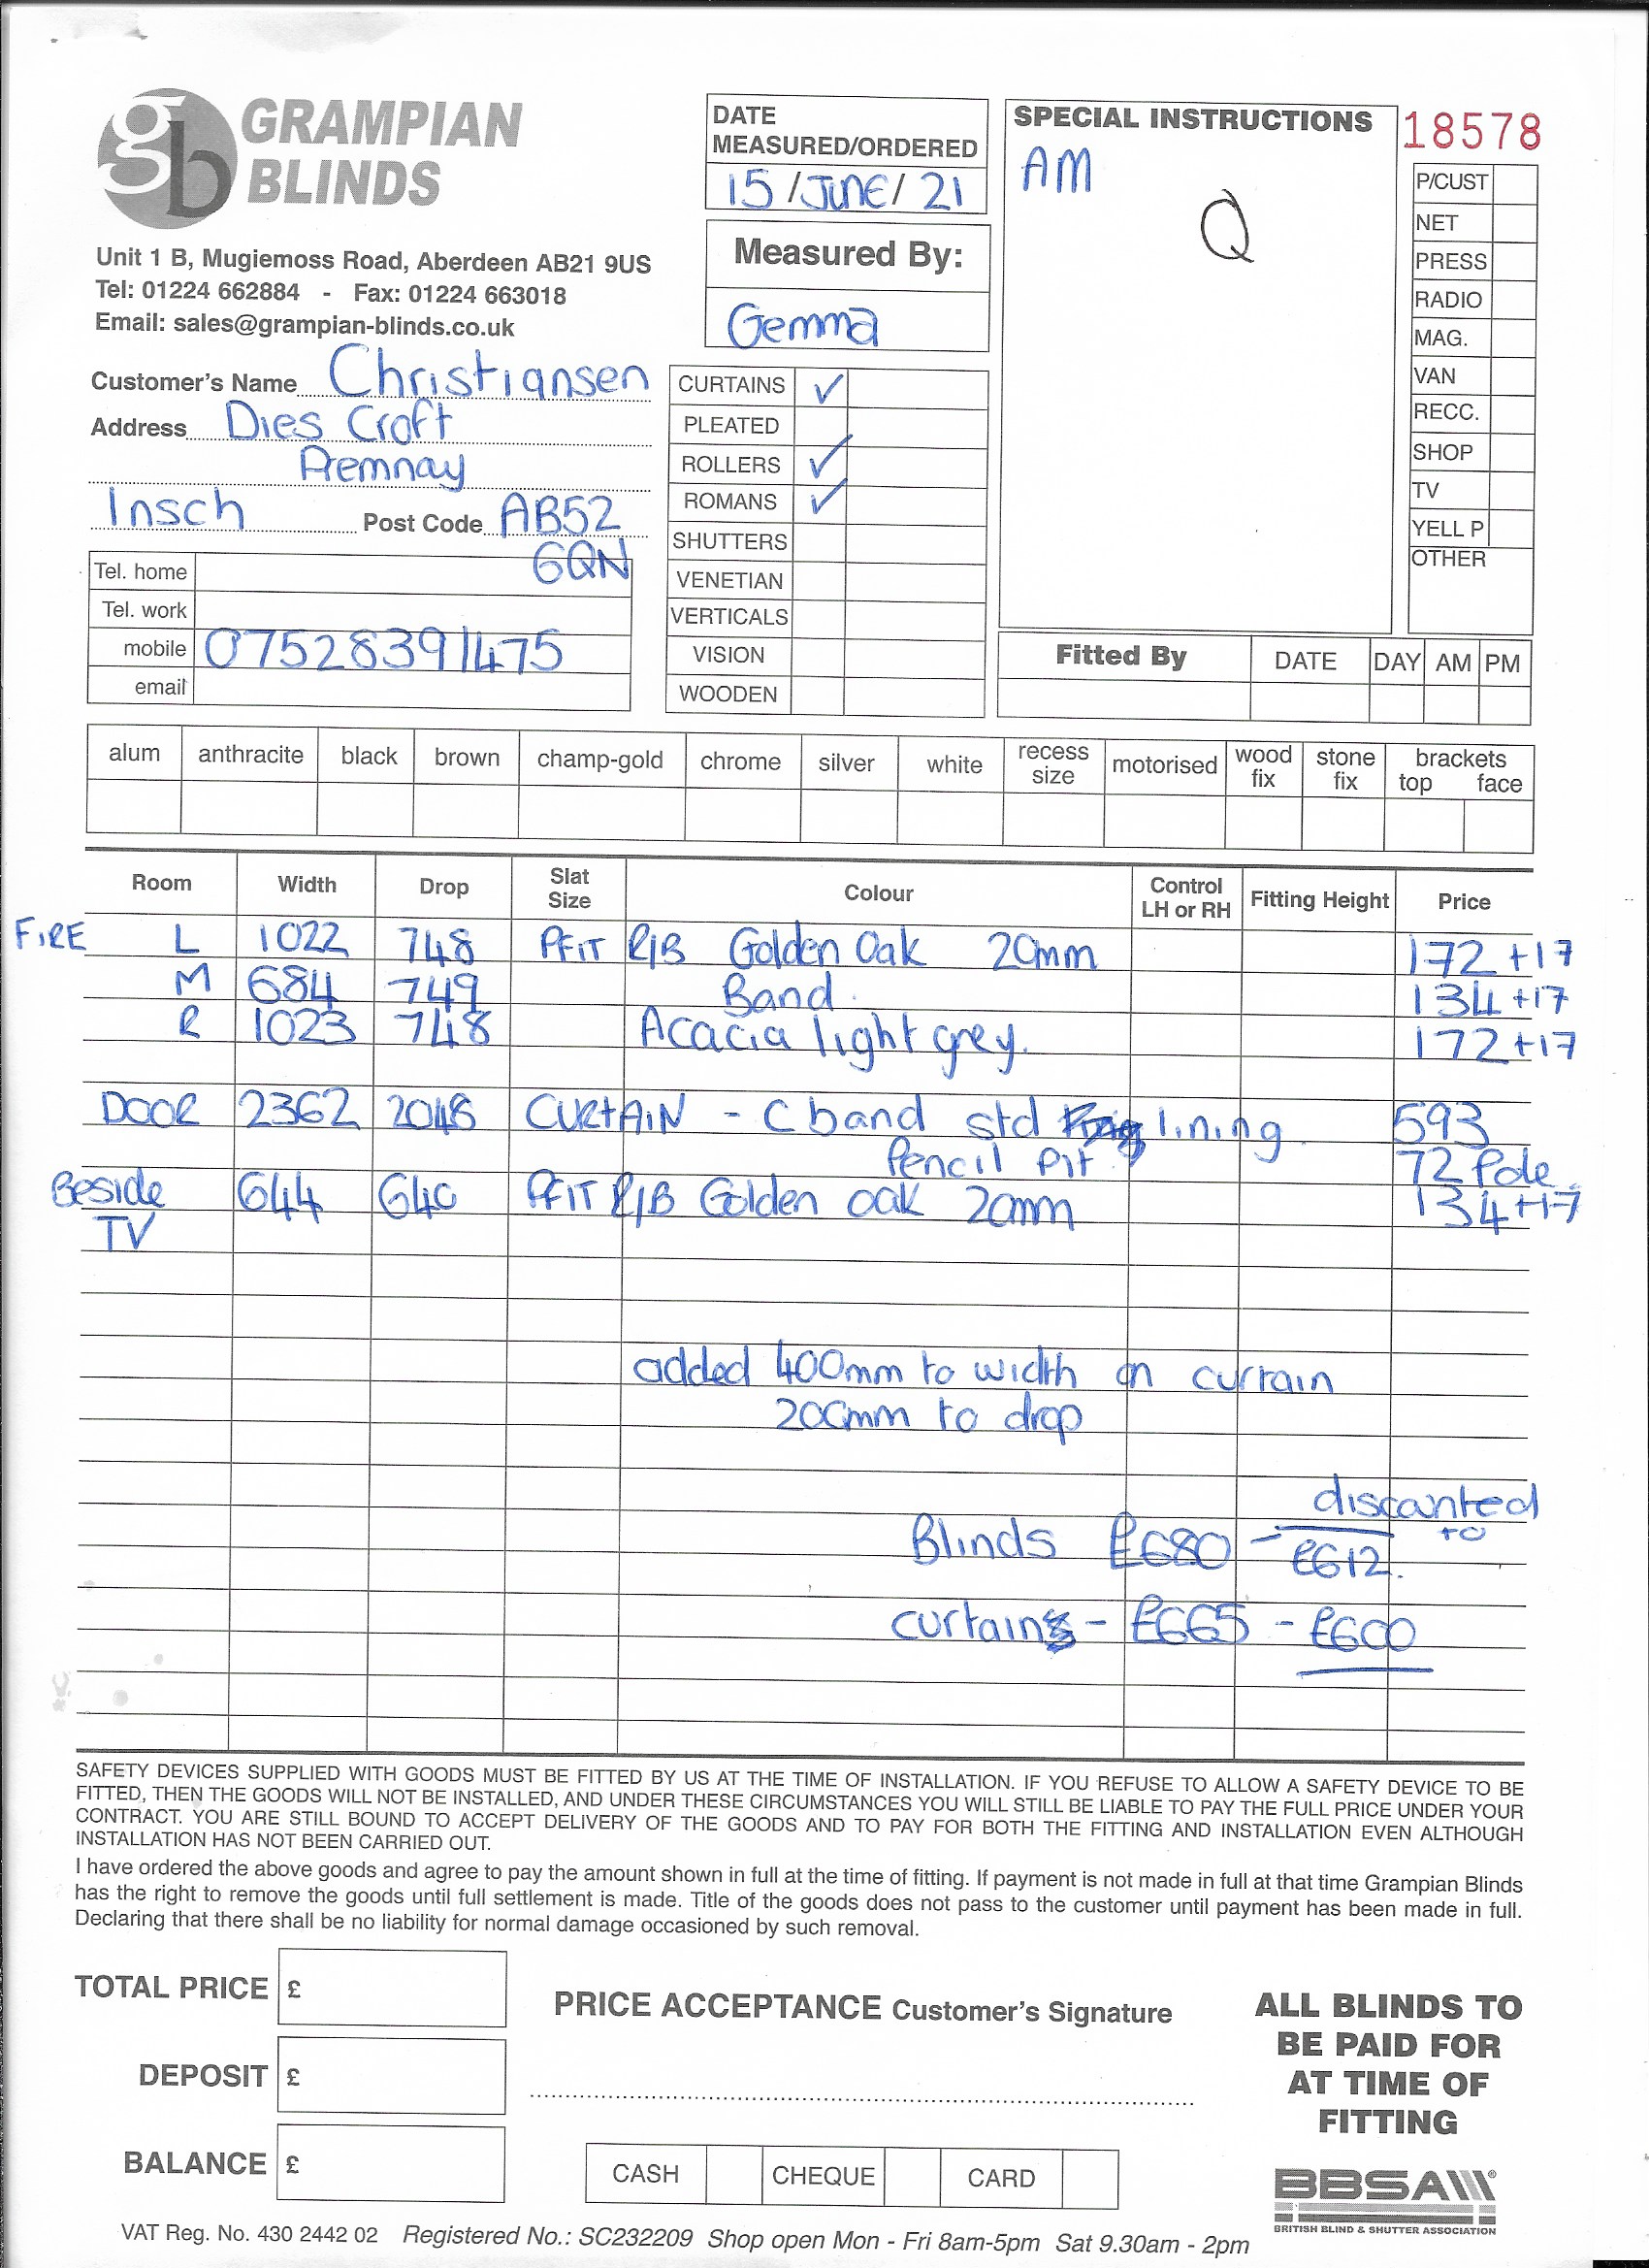 GRAMPIAN
BLINDS
Unit 1 B, Mugiemoss Road, Aberdeen AB21 9US
Tel: 01224 662884 - Fax: 01224 663018
Email: sales@grampian-blinds.co.uk
DATE
MEASURED/ORDERED
15/JUNE/21
Measured By:
Gemma
SPECIAL INSTRUCTIONS
AM
Q
18578
P/CUST
NET
PRESS
RADIO
MAG.
VAN
RECC.
SHOP
TV
YELL P
OTHER
Customer's Name Christiansen
Address Dies Croft
Premnay
Insch Post Code AB52
6QN
Tel. home
Tel. work
mobile 07528391475
email
CURTAINS ✓
PLEATED
ROLLERS ✓
ROMANS ✓
SHUTTERS
VENETIAN
VERTICALS
VISION
WOODEN
Fitted By DATE DAY AM PM
alum anthracite black brown champ-gold chrome silver white recess size motorised wood fix stone fix brackets top face
Room Width Drop Slat Size Colour Control LH or RH Fitting Height Price
FIRE L 1022 748 PFIT R/B Golden Oak 20mm 172+17
M 684 749 Band 134+17
R 1023 748 Acacia light grey. 172+17
DOOR 2362 2048 CURTAIN - C band std lining 593
Pencil Plt 72 Pole
Beside 644 640 PFIT R/B Golden oak 20mm 134+17
TV
added 400mm to width on curtain
200mm to drop
discounted
Blinds £680 - to £612.
curtains - £665 - £600
SAFETY DEVICES SUPPLIED WITH GOODS MUST BE FITTED BY US AT THE TIME OF INSTALLATION. IF YOU REFUSE TO ALLOW A SAFETY DEVICE TO BE
FITTED, THEN THE GOODS WILL NOT BE INSTALLED, AND UNDER THESE CIRCUMSTANCES YOU WILL STILL BE LIABLE TO PAY THE FULL PRICE UNDER YOUR
CONTRACT. YOU ARE STILL BOUND TO ACCEPT DELIVERY OF THE GOODS AND TO PAY FOR BOTH THE FITTING AND INSTALLATION EVEN ALTHOUGH
INSTALLATION HAS NOT BEEN CARRIED OUT.
I have ordered the above goods and agree to pay the amount shown in full at the time of fitting. If payment is not made in full at that time Grampian Blinds
has the right to remove the goods until full settlement is made. Title of the goods does not pass to the customer until payment has been made in full.
Declaring that there shall be no liability for normal damage occasioned by such removal.
TOTAL PRICE £
DEPOSIT £
BALANCE £
PRICE ACCEPTANCE Customer's Signature
CASH CHEQUE CARD
ALL BLINDS TO
BE PAID FOR
AT TIME OF
FITTING
BBSA
BRITISH BLIND & SHUTTER ASSOCIATION
VAT Reg. No. 430 2442 02 Registered No.: SC232209 Shop open Mon - Fri 8am-5pm Sat 9.30am - 2pm